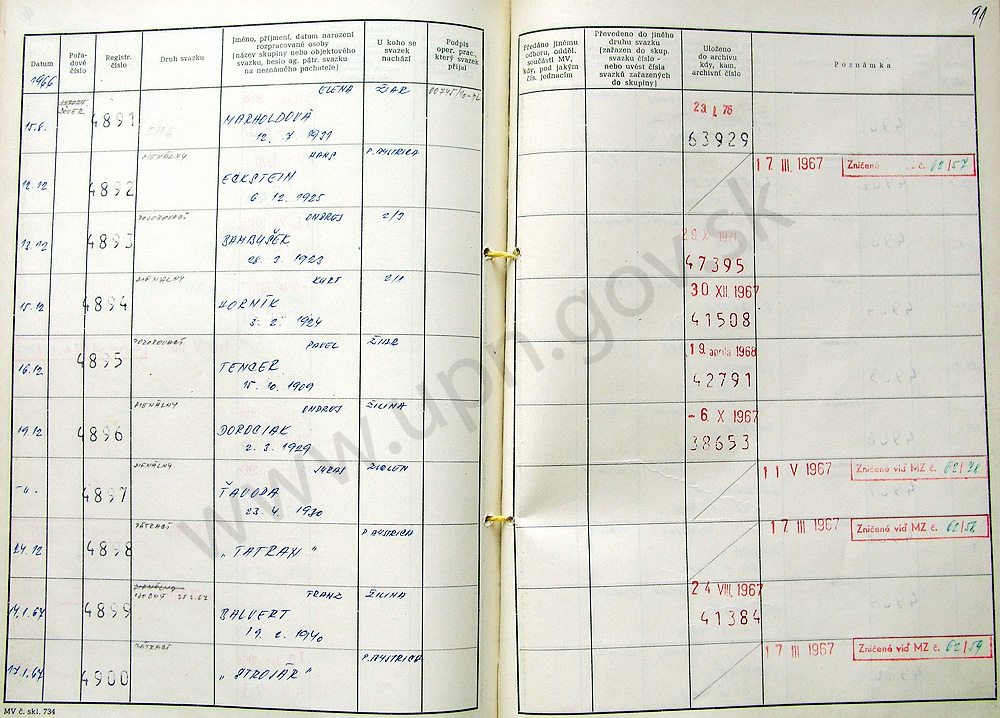 91
Datum
Pořa-
dové
číslo
Registr.
číslo
Druh svazku
Jméno, příjmení, datum narození
rozpracované osoby
(název skupiny nebo objektového
svazku, heslo ag. pátr. svazku
na neznámého pachatele)
U koho se
svazek
nachází
Podpis
oper. prac.,
který svazek
přijal
Předáno jinému
odboru, odděl.
součásti MV,
kdy, pod jakým
čís. jednacím
Převedeno do jiného
druhu svazku
(zařazen do skup.
svazku číslo -
nebo uvést čísla
svazků zařazených
do skupiny)
Uloženo
do archivu
kdy, kam,
archivní číslo
Poznámka
1966
15.8.
4891
ELENA
MARHOLDOVÁ
12. 7 1931
ŽIAR
63929
12.12
4892
SIGNÁLNY
HANS
ECKSTEIN
6. 12. 1925
P. BYSTRICA
17. III. 1967
Zničené č. 62/57
13.12
4893
POZOROVACÍ
ONDREJ
BAMBUŠEK
28. 3. 1923
2/3
29. X 1971
47395
15.12
4894
SIGNÁLNY
KURT
HORNÍK
3. 2. 1924
2/1
30 XII. 1967
41508
16.12
4895
POZOROVACÍ
PAVEL
TENCER
15. 10. 1909
ŽIAR
19. apríla 1968
42791
19.12
4896
SIGNÁLNY
ONDREJ
DOROCIAK
2. 3. 1929
ŽILINA
- 6. X 1967
38653
4897
SIGNÁLNY
JURAJ
ŤAVODA
23. 4. 1930
ZVOLEN
11 V 1967
Zničené viď MZ č. 62/78
24.12
4898
PÁTRACÍ
„TATRAN“
P. BYSTRICA
17. III 1967
Zničené viď MZ č. 62/58
14.1.67
4899
FRANZ
BALVERT
19. 2. 1940
ŽILINA
24 VIII. 1967
41384
17.1.67
4900
PÁTRACÍ
„STROJÁR“
P. BYSTRICA
17 III 1967
Zničené viď MZ č. 62/59
MV č. skl. 734
www.upn.gov.sk